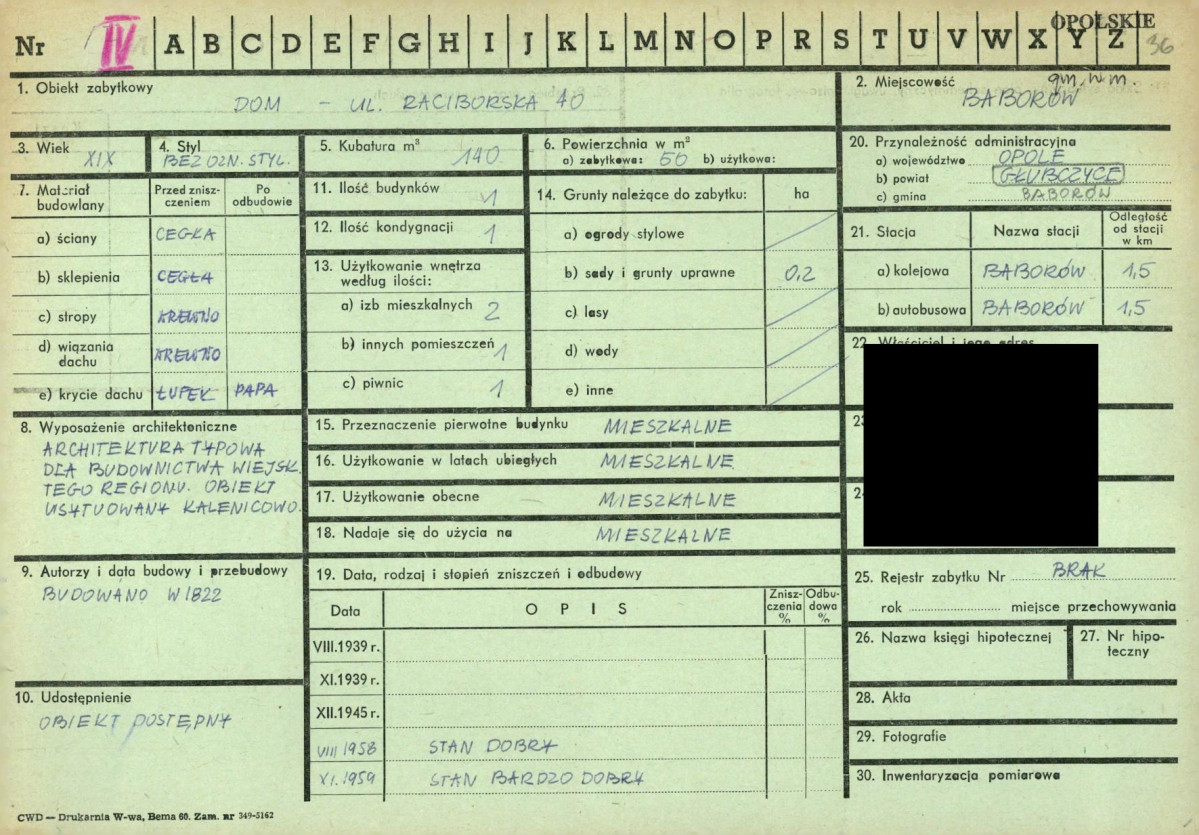 OPOLSKIE
Nr IV A B C D E F G H I J K L M N O P R S T U V W X Y Z 36
1. Obiekt zabytkowy
DOM - UL. RACIBORSKA 40
2. Miejscowość gm. w m.
BABORÓW
3. Wiek XIX
4. Styl
BEZ OZN. STYL.
5. Kubatura m³ 140
6. Powierzchnia w m²
a) zabytkowa: 50 b) użytkowa:
20. Przynależność administracyjna
a) województwo OPOLE
b) powiat GŁUBCZYCE
c) gmina BABORÓW
7. Materiał budowlany
Przed znisz-
czeniem
Po
odbudowie
a) ściany CEGŁA
b) sklepienia CEGŁA
c) stropy DREWNO
d) wiązania
dachu DREWNO
e) krycie dachu ŁUPEK PAPA
11. Ilość budynków 1
12. Ilość kondygnacji 1
13. Użytkowanie wnętrza
według ilości:
a) izb mieszkalnych 2
b) innych pomieszczeń 1
c) piwnic 1
14. Grunty należące do zabytku: ha
a) ogrody stylowe
b) sady i grunty uprawne 0,2
c) lasy
d) wody
e) inne
21. Stacja
Nazwa stacji
Odległość
od stacji
w km
a) kolejowa BABORÓW 1,5
b) autobusowa BABORÓW 1,5
22. Właściciel i jego adres
8. Wyposażenie architektoniczne
ARCHITEKTURA TYPOWA
DLA BUDOWNICTWA WIEJSK.
TEGO REGIONU. OBIEKT
USYTUOWANY KALENICOWO.
15. Przeznaczenie pierwotne budynku MIESZKALNE
16. Użytkowanie w latach ubiegłych MIESZKALNE
17. Użytkowanie obecne MIESZKALNE
18. Nadaje się do użycia na MIESZKALNE
23
24
9. Autorzy i data budowy i przebudowy
BUDOWANO W 1822
10. Udostępnienie
OBIEKT DOSTĘPNY
19. Data, rodzaj i stopień zniszczeń i odbudowy
Data
OPIS
Znisz-
czenia
%
Odbu-
dowa
%
VIII.1939 r.
XI.1939 r.
XII.1945 r.
VIII 1958 STAN DOBRY
XI.1959 STAN BARDZO DOBRY
25. Rejestr zabytku Nr BRAK
rok miejsce przechowywania
26. Nazwa księgi hipotecznej
27. Nr hipo-
teczny
28. Akta
29. Fotografie
30. Inwentaryzacja pomiarowa
CWD — Drukarnia W-wa, Bema 60. Zam. nr 349-5162